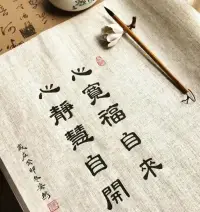 心寬福自來
心靜慧自開